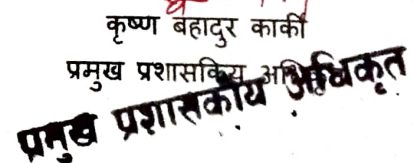 कृष्ण बहादुर कार्की
प्रमुख प्रशासकिय
प्रमुख प्रशासकीय अधिकृत